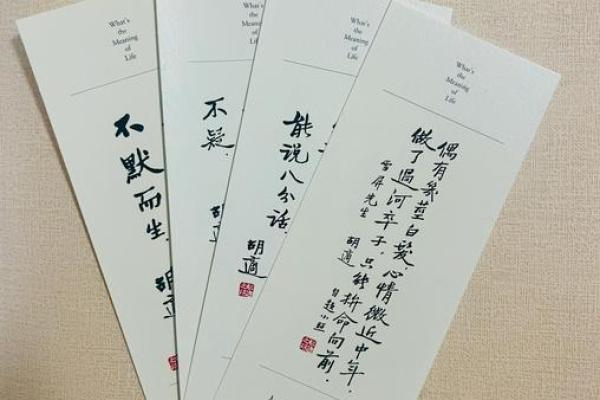 What's
the
Meaning
of
Life
不默而生.
胡適
What's
the
Meaning
of
Life
不疑.
What's
the
Meaning
of
Life
能说八分话.
胡適
What's
the
Meaning
of
Life
偶有幾莖白髮,心情微近中年.
做了過河卒子,只能拚命向前.
雪屏先生 胡適